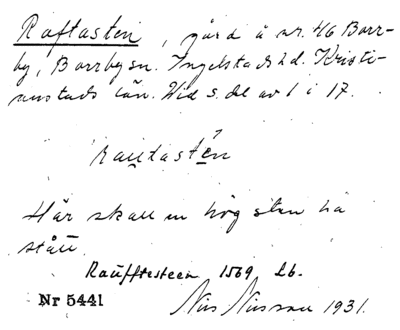 Raftasten, gård å nr. 46 Borr-
by, Borrby sn. Ingelstads hd. Kristi-
anstads län. Vid s. del av 1 i 17.
rau̯tastén
Här skall en hög sten ha
stått.
Raüfftesteen 1569 Lb.
Nr 5441 Nils Nilsson 1931.